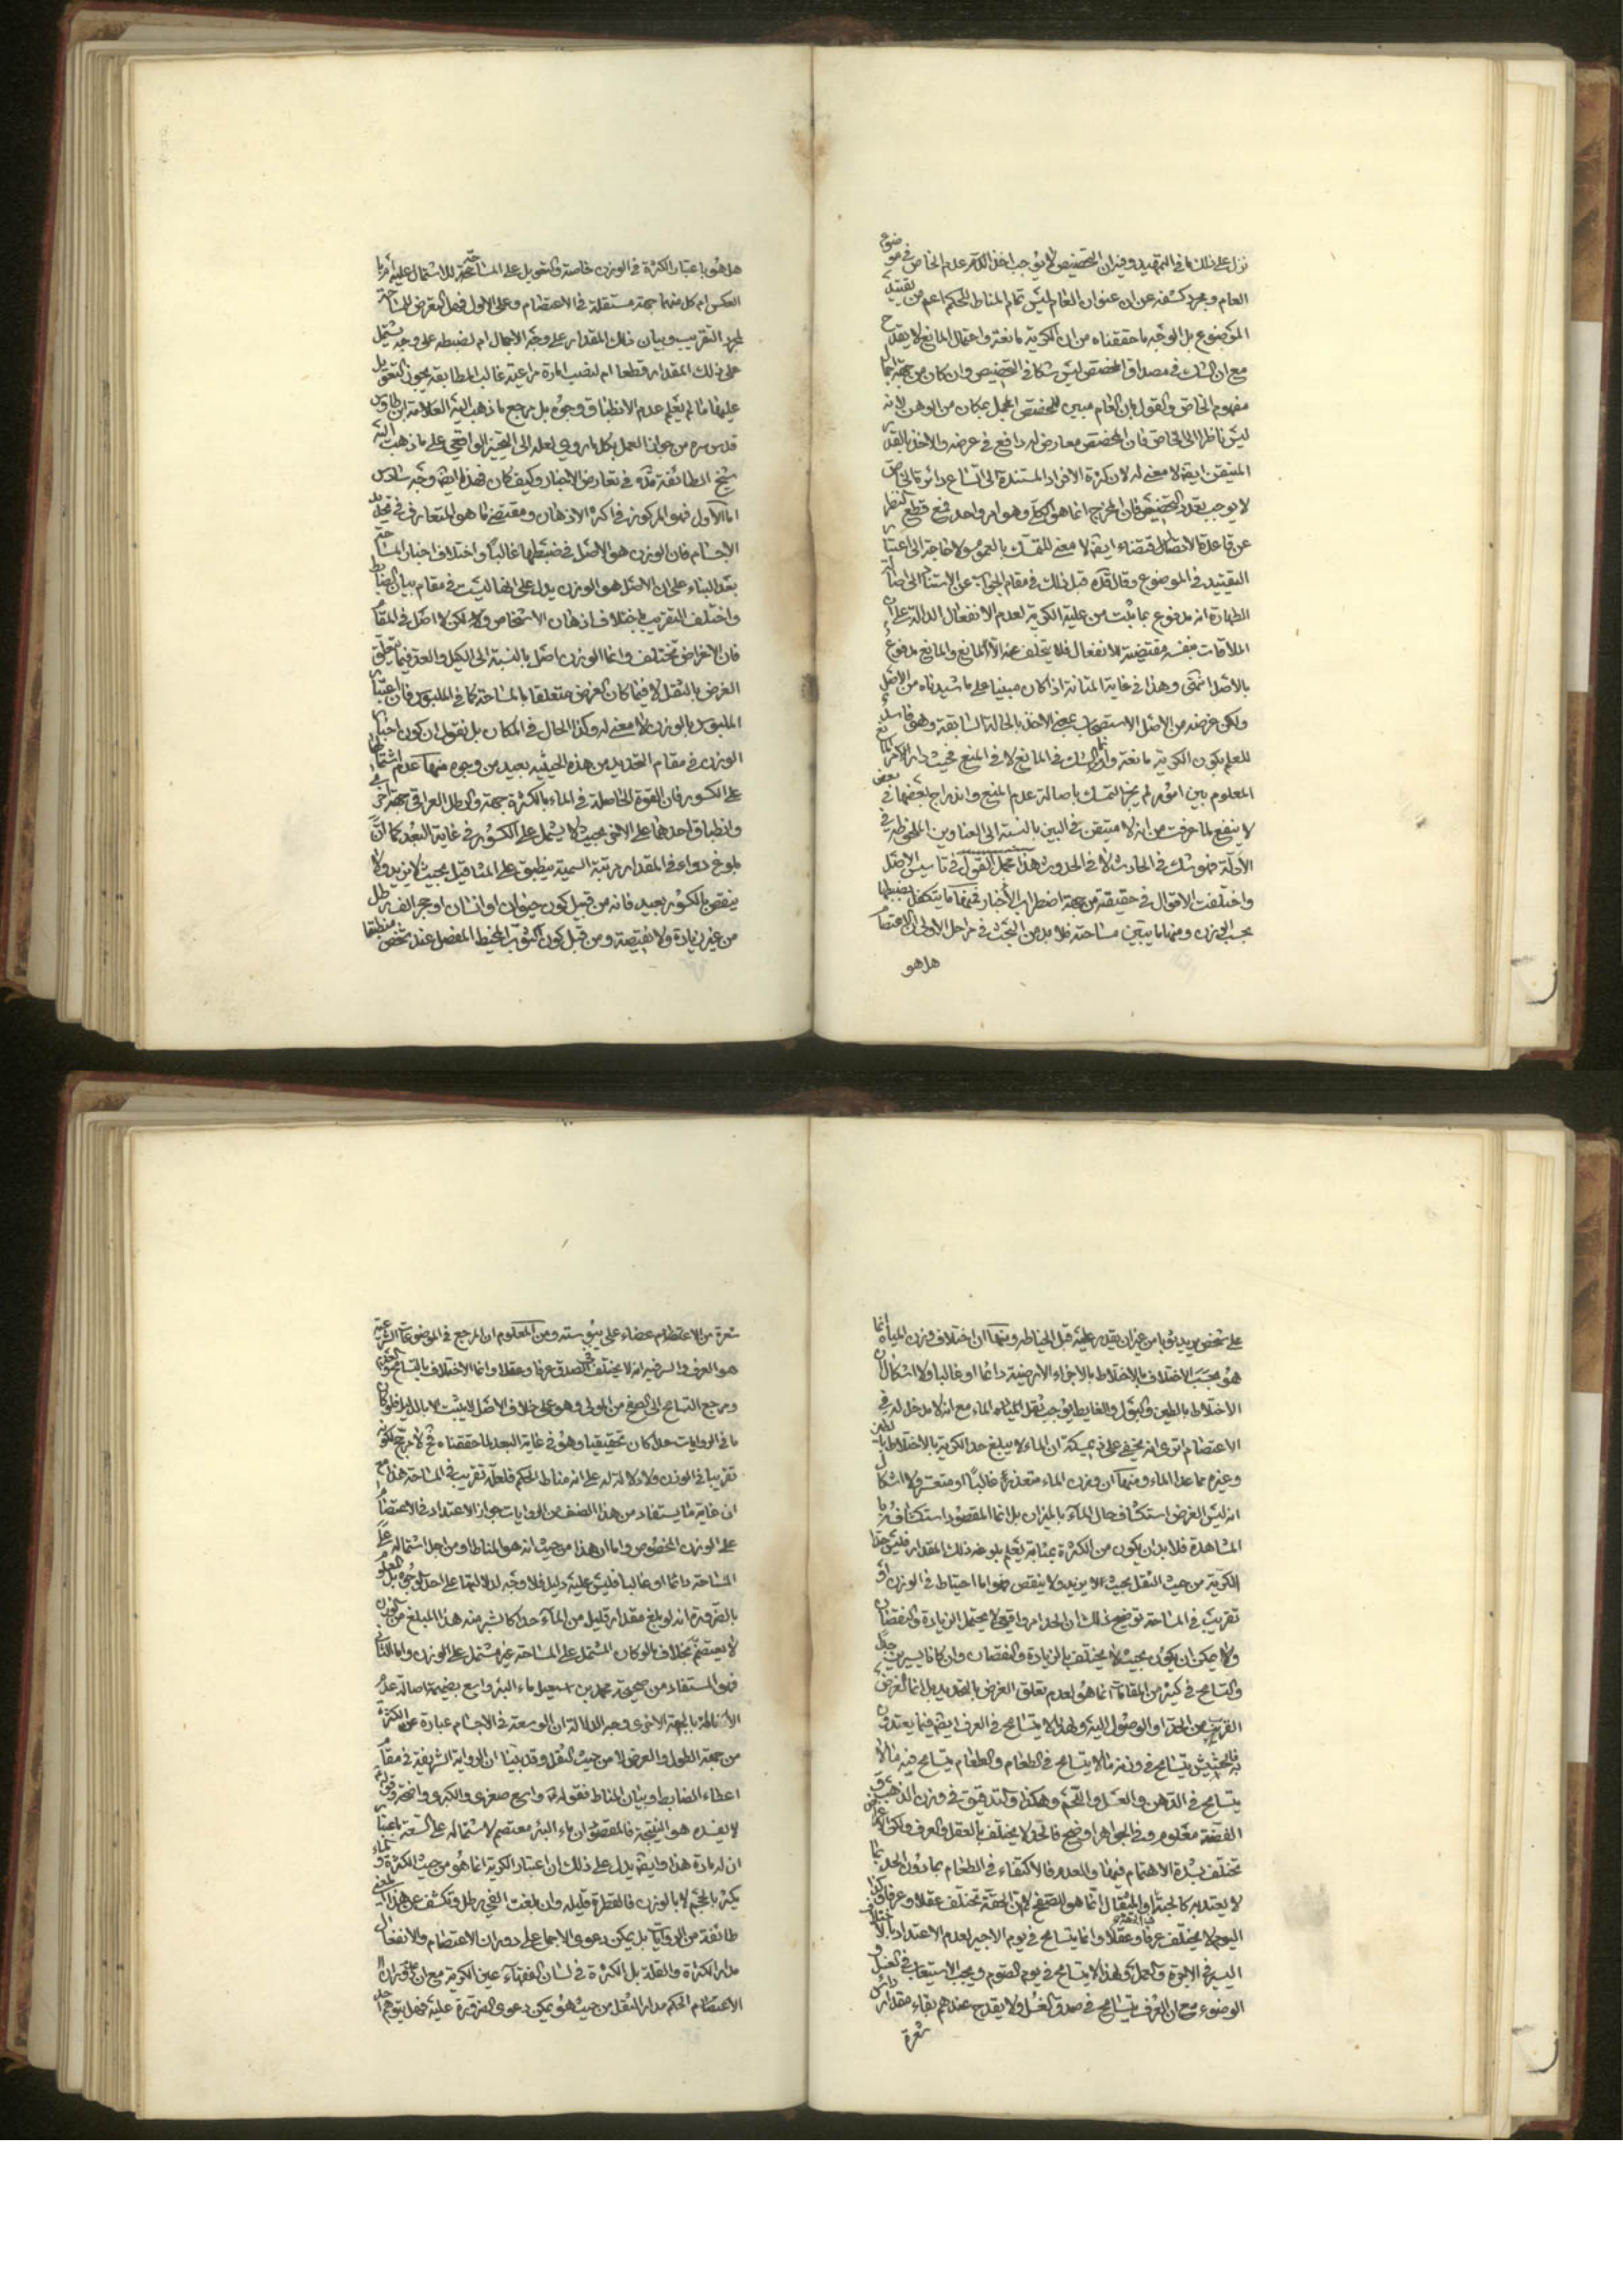 نزل على ذلك ما فى التمهيد وفيه ان التخصيص لا يوجب اخذ عدم الخاص فى موضوع
العام ومجرد كشفه عن ان عنوان العام ليس تمام المناط للحكم اعم من تقييد
الموضوع بل الوجه ما حققناه من ان الكرية مانعة واحتمال المانع لا يقدح
مع ان الشك فى مصداق المخصص ليس شكا فى التخصيص وان كان من جهة اجمال
مفهوم الخاص والقول بان العام مبين للمخصص المجمل بمكان من الوهن لانه
ليس ناظرا الى الخاص فان المخصص معارض له دافع فى عرضه والاخذ بالقدر
المتيقن ايضا لا معنى له لان كثرة الافراد المستندة الى اتساع دائرة الخاص
لا يوجب تعدد التخصيص فان المخرج انما هو الكلى وهو امر واحد فمع قطع النظر
عن قاعدة الاقتضاء ايضا لا معنى للتمسك بالعموم ولا حاجة الى اعتبار
التقييد فى الموضوع وقال قده قبل ذلك فى مقام الجواب عن الاستناد الى اصالة
الطهارة انه مدفوع بما ثبت من علية الكرية لعدم الانفعال الدالة على ان
الملاقات بنفسه مقتضية للانفعال فلا يتخلف عنه الا لمانع والمانع مدفوع
بالاصل انتهى وهذا فى غاية المتانة اذا كان مبنيا على ما شيدناه من الاصل
ولكن غرضه من الاصل الاستصحاب بمعنى الاخذ بالحالة السابقة وهو فاسد
للعلم بكون الكرية مانعة وانما الشك فى المانع لا فى المنع فحيث دار الامر
المعلوم بين امور لم يجز التمسك باصالة عدم المنع واندراج بعضها فى بعض
لا ينفع لما عرفت من انه لا متيقن فى البين بالنسبة الى العناوين الملحوظة فى
الادلة فهو شك فى الحادث لا فى الحدوث هذا مجمل القول فى تأسيس الاصل
واختلفت الاقوال فى حقيقته من جهة اضطراب الاخبار فمنها ما يتكفل بضبطها
بحسب الوزن ومنها ما يبين مساحته فلا بد من البحث فى مراحل الاولى ان الاعتصام
هل هو
هل هو باعتبار الكثرة فى الوزن خاصة والتعويل على المساحة للاشتمال عليه او
العكس ام كل منهما جهة مستقلة فى الاعتصام وعلى الاول فهل التعرض للمساحة
لمجرد التقريب وبيان ذلك المقدار على وجه الاجمال ام لضبطه على وجه يشتمل
على ذلك المقدار قطعا ام لنصب امارة مراعية غالب المطابقة يجوز التعويل
عليها ما لم يعلم عدم الانطباق وجوه بل مرجع ما ذهب اليه العلامة ابن طاوس
قدس سره من جواز العمل بكل ما روى لعله الى التخيير الواقعى على ما ذهب اليه
شيخ الطائفة قده فى تعارض الاخبار وكيف كان فهذا ايضا وجه سادس
اما الاول فهو المركوز فى اكثر الاذهان ومقتضى ما هو المتعارف فى تحديد
الاجسام فان الوزن هو الاصل فى ضبطها غالبا واختلاف اخبار المساحة
بعد البناء على ان الاصل هو الوزن يدل على انها ليست فى مقام بيان الضابط
واختلف التقريب باختلاف اذهان الاشخاص ولكن لا اصل فى المقام
فان الاغراض تختلف وانما الوزن اصل بالنسبة الى الكيل والعد فيما يتعلق
الغرض بالثقل لا فيما كان الغرض متعلقا بالمساحة كما فى الملبوس فان اعتبار
الملبوس بالوزن لا معنى له وكذا الحال فى المكان بل نقول ان كون اخبار
الوزن فى مقام التحديد من هذه الحيثية بعيد من وجوه منها عدم اشتمالها
على الكسور فان القوة الحاصلة فى الماء بالكثرة جهة والرطل العراقى جهة اخرى
وانطباق احدهما على الاخر بحيث لا يشمل على الكسور فى غاية البعد كما ان
بلوغ دواء فى المقدار مرتبة السمية ينطبق على المثاقيل بحيث لا يزيد ولا
ينقص بالكسور بعيد فانه من قبيل كون حيوان او انسان او حجر الف رطل
من غير زيادة ولا نقيصة ومن قبيل كون الثوب المخيط المفصل عند شخص منطبقا
على شخص يريد لبسه من غير ان يقدر عليه قبل الخياطة ومنها ان اختلاف وزن المياه انما
هو بحسب الاختلاف بالاختلاط بالاجزاء الارضية دائما او غالبا ولا اشكال ان
الاختلاط بالطين والبول والغايط يوجب ثقل الماء مع انه لا مدخل له فى
الاعتصام اترى انه يخفى على ذى مسكة ان الماء لا يبلغ حد الكرية بالاختلاط بالطين
وغيره مما عدا الماء ومنها ان وزن الماء متعذر غالبا او متعسر ولا اشكال
انه ليس الغرض استكشاف حال الماء بالميزان بل انما المقصود استكشافه
المشاهدة فلا بد ان يكون من الكثرة بمثابة يعلم بلوغه ذلك المقدار فليس حد
الكرية من حيث الثقل بحيث لا يزيد ولا ينقص فهو اما احتياط فى الوزن او
تقريب فى المساحة توضيح ذلك ان الحد امر واقعى لا يحتمل الزيادة والنقصان
ولا يمكن ان يكون بحيث لا يختلف بالزيادة والنقصان وان كانا يسيرين جدا
والتسامح فى كثير من المقامات انما هو لعدم تعلق الغرض بالتحديد بل انما الغرض
القرب من الحد او الوصول اليه ولهذا لا يتسامح فى العرف ايضا فيما يعتدون
به فالحشيش يتسامح فى وزنه ما لا يتسامح فى الطعام والطعام يتسامح فيه ما لا
يتسامح فى الدهن والعسل واللحم وهكذا والتدقيق فى وزن الذهب
الفضة معلوم وفى الجواهر اوضح فالحد لا يختلف بالعقل والعرف ولكن
تختلف بشدة الاهتمام فيها والعدم فالاكتفاء فى الطعام بما دون الحد بما
لا يعتد به كالحبة او المثقال انما هو للصفح لا ان الحقة تختلف عقلا وعرفا وكذا
اليوم لا يختلف عرفا وعقلا وانما يتسامح فى يوم الاجير لعدم الاعتداد
اليسير فى الاجرة والعمل ولهذا لا يتسامح فى يوم الصوم ويجب الاستيعاب فى الغسل
الوضوء مع ان العرف يتسامح فى صدق الغسل ولا يقدح عندهم بقاء مقدار
شعرة
شعرة من الاعتصام عضاء على ومن المعلوم ان المرجع فى الموضوعات الشرعية
هو العرف والسر فيه انه لا يختلف الصدق عرفا وعقلا وانما الاختلاف بالتسامح
ومرجع التسامح الى الصفح من المولى وهو على خلاف الاصل لا يثبت الا بالدليل فلو كان
ما فى الروايات حدا كان تحقيقيا وهو فى غاية البعد لما حققناه فلا مرجح لكونه
تقريبا فى الوزن ولا دلالة له على انه مناط الحكم فلعله تقريب فى المساحة هذا مع
ان غاية ما يستفاد من هذا الصنف من الروايات جواز الاعتداد فى الاعتصام
على الوزن المخصوص واما ان هذا من حيث انه هو المناط او من اجل اشتماله على
المساحة دائما او غالبا فليس عليه دليل فلا وجه لدلالتها على احد الوجوه بل المعلوم
بالضرورة انه لو بلغ مقدار قليل من الماء حدا كاسر منه هذا المبلغ من الوزن
لا يعتصم بخلاف ما لو كان المشتمل على المساحة غير مشتمل على الوزن واما الثانى
فهو المستفاد من صحيحة محمد بن اسمعيل ماء البئر واسع بضميمة اصالة عدم
بالجهة الاخرى وجه الدلالة ان الوسعة فى الاجسام عبارة عن الكثرة
من جهة الطول والعرض لا من حيث الثقل وقد بينا ان الرواية الشريفة فى مقام
اعطاء الضابط وبيان المناط فقوله واسع صغرى والكبرى واضحة وقوله
لا يفسده هو النتيجة فالمقصود ان ماء البئر معتصم لاشتماله على السعة باعتبار
ان له مادة هذا وايضا يدل على ذلك ان اعتبار الكرية انما هو من حيث الكثرة والماء
يكثر بالحجم لا بالوزن فالقطرة قليلة وان بلغت الفى رطل وتكشف عن هذا المعنى
طائفة من الروايات بل يمكن دعوى الاجماع على دوران الاعتصام والانفعال
مدار الكثرة والقلة بل الكثرة فى لسان الفقهاء عين الكرية مع ان
الاعتصام الحكم مدار الثقل من حيث هو يمكن دعوى الضرورة عليه فهل يتوهم احد